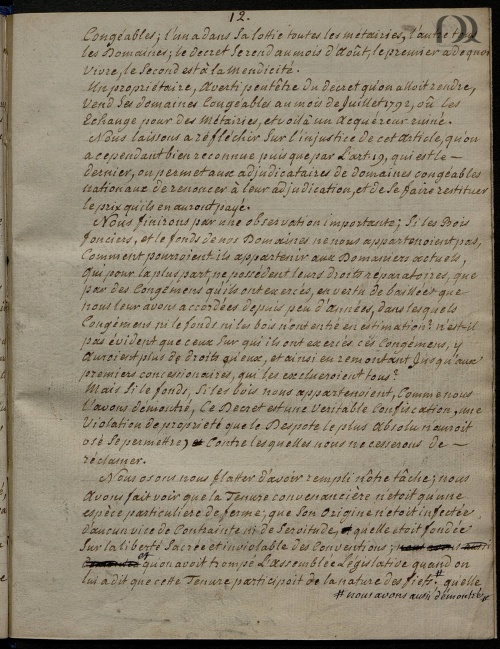 12.
Congéables; l'un a dans sa lottie toutes les métairies, l'autre tous
les Domaines; le decret se rend au mois d'Août, le premier a de quoi
vivre, le second est à la mendicité.
Un propriétaire, averti peutêtre du decret qu'on alloit rendre,
vend ses domaines Congéables au mois de Juillet 1792, où les
Echange pour des Métairies, et voilà un Acquéreur ruiné.
Nous laissons à réfléchir sur l'injustice de cet article, qu'on
a cependant bien reconnue puisque par l'art. 19, qui est le –
dernier, on permet aux adjudicataires de domaines congéables
nationaux de renoncer à leur adjudication, et de se faire restituer
le prix qu'ils en auront payé.
Nous finirons par une observation importante; si les Bois
fonciers, et le fonds de nos Domaines ne nous appartenoient pas,
Comment pourroient ils appartenir aux Domaniers actuels,
qui pour la plus part, ne possèdent leurs droits réparatoires, que
par des Congémens qu'ils ont exercés, en vertu de baillées que
nous leur avons accordées depuis peu d'années, dans lesquels
Congémens ni le fonds ni les bois n'ont entré en estimation? n'est-il
pas évident que ceux sur qui ils ont exercés ces Congémens, y
auroient plus de droits qu'eux, et ainsi en remontant jusqu'aux
premiers concessionaires, qui les excluroient tous?
Mais si le fonds, si les bois nous appartenoient, Comme nous
l'avons démontré, Ce Decret est une véritable Confiscation, une
Violation de propriété que le Despote le plus Absolu n'auroit
osé se permettre, et Contre lesquelles nous ne cesserons de –
réclamer.
Nous osons nous flatter d'avoir rempli nôtre tâche; nous
avons fait voir que la Tenure convenancière n'étoit qu'une
espèce particulière de ferme, que son Origine n'étoit infectée
d'aucun vice de Contrainte ni de Servitude, quelle etoit fondée
sur la liberté sacrée et inviolable des Conventions; nous avons aussi
démontré et qu'on avoit trompé l'assemblée Législative quand on
lui a dit que cette Tenure participoit de la nature des fiefs. # quelle
# nous avons aussi démontré